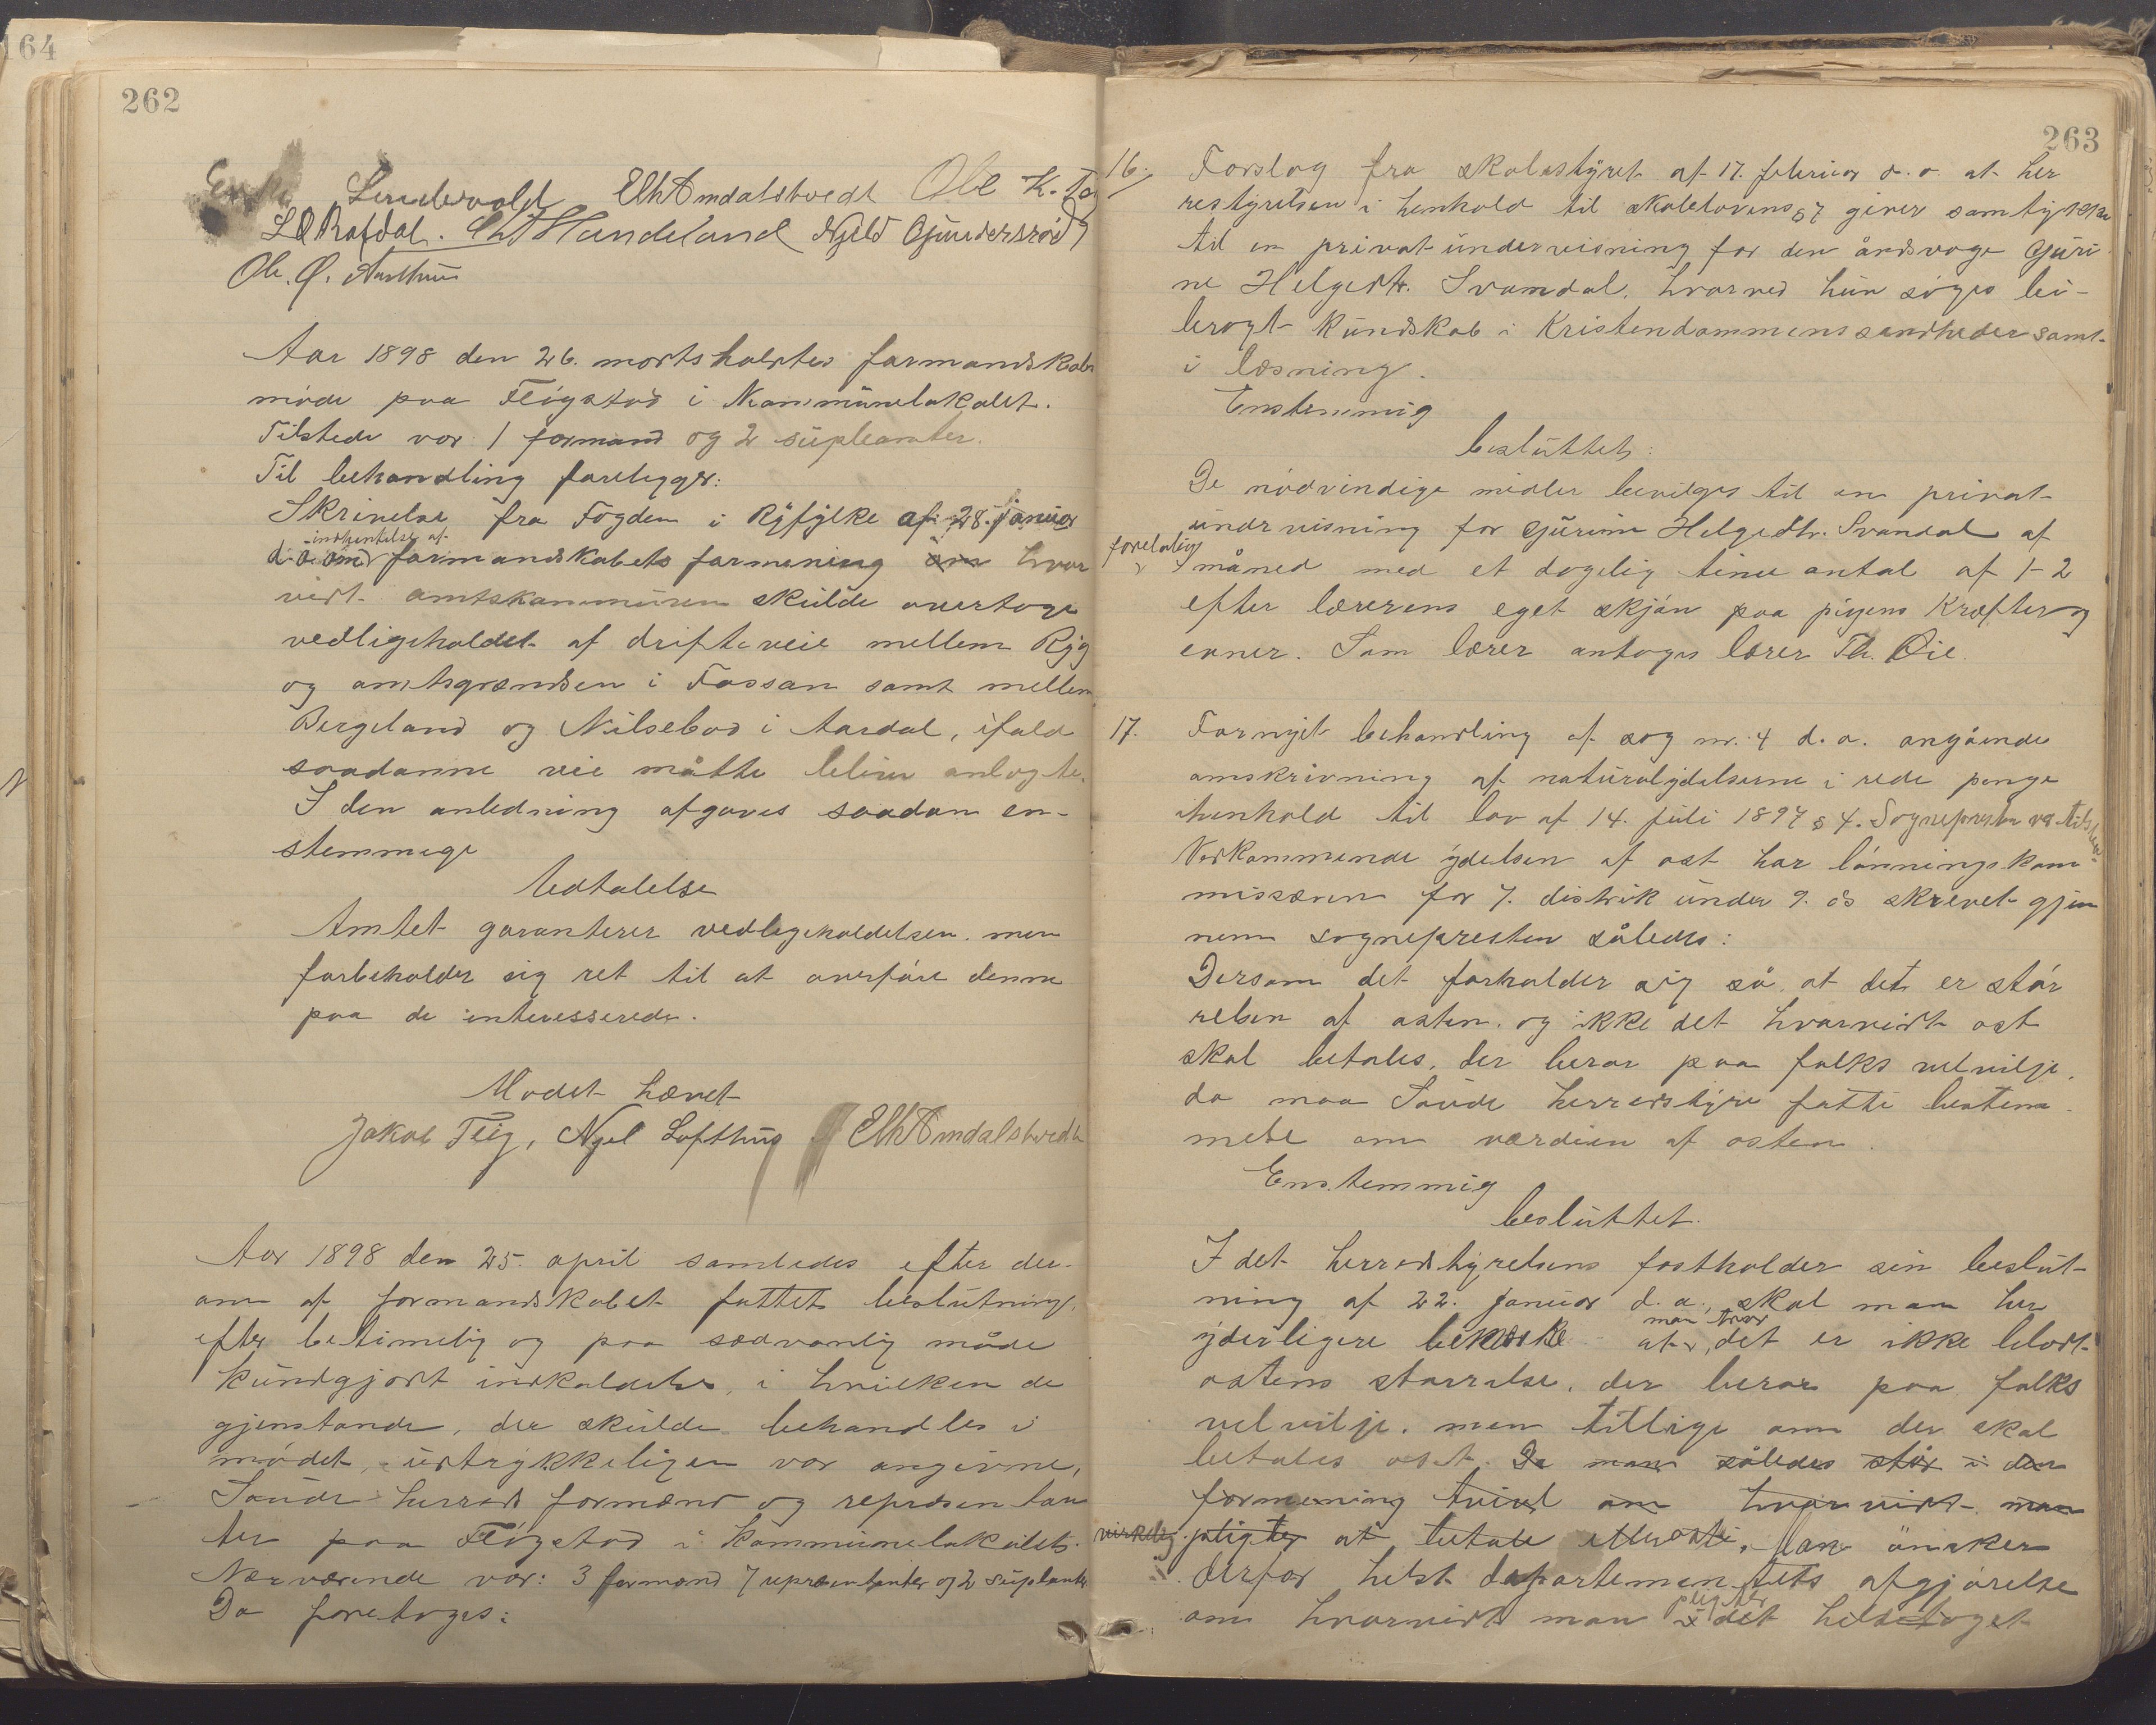 164
262
Lindervold ElhAmdalstvedt Ole K.
L O Rafdal. Handeland Njeld Gundersrød
Ole. Ø. Aarthun
Aar 1898 den 26. marts holdtes formandskabs
møde paa Fløgstad i Kommunelokalet.
Tilstede var 1 formand og 2 supleanter.
Til behandling foreligger:
Skrivelse fra Fogden i Ryfylke af 28. januar
indhentelse af
d. a. om formandskabets formening om hvor
vidt amtskommunen skulde overtage
vedligeholdet af driftsveie mellem Røg
og amtsgrændsen i Fossan samt mellem
Bergeland og Nilsebod i Aardal, ifald
saadanne veie måtte bliver anlagte.
I den anledning afgaves saadan en-
stemmige
Udtalelse
Amtet garanterer vedligeholdelsen. men
forbeholder sig ret til at overføre denne
paa de interesserede.
Mødet hævet
Jakob Fløg, Njel Lofthus ElhAmdalstvedt
Aar 1898 den 25. april samledes efter der-
om af formandskabet fattet beslutning,
efter betimelig og paa sædvanlig måde
kundgjort indkaldelse, i hvilken de
gjenstande, der skulde behandles i
mødet, udtrykkeligen var angivne,
Saude herreds formænd og repræsentan
ter paa Fløgstad i kommunelokalet.
Nærværende var: 3 formænd 7 repræsentanter og 2 suplanter
Da foretoges:
263
16. Forslag fra skolestyret af 17. februar d. a. at her
restyrelsen i henhold til skolelovens § 7 giver samtykke
til en privat undervisning for den åndsvage Guri
ne Helgedtr. Svandal, hvorved hun søges bi-
bragt kundskab i Kristendommens sandheder samt
i læsning.
Enstemmig
besluttet:
De nødvendige midler bevilges til en privat
undervisning for Gurine Helgedtr. Svandal af
foreløbig
1 måned med et dagelig time antal af 1-2
efter lærerens eget skjøn paa pigens Kræfter og
evner. Som lærer antoges lærer Th. Øie.
17. Fornyet behandling af sag nr. 4 d. a. angående
omskrivning af naturalydelserne i rede penge
i henhold til lov af 14. juli 1897 § 4. Sognepresten var tilstede.
Vedkommende ydelsen af ost har lønningskom
missæren for 7. distrik under 9. ds skrevet gjen
nem sognepresten således:
Dersom det forholder sig så, at det er stør
relsen af osten, og ikke det hvorvidt ost
skal betales, der beror paa folks velvilje,
da maa Saude herredstyre fatte bestem
melse om værdien af osten.
Enstemmig
besluttet.
I det herredstyrelsens fastholder sin beslut-
ning af 22. januar d. a., skal man her
man tror
yderligere bemærke at, det er ikke blodt
ostens størrelse, der beror paa folks
velvilje, men tillige om der skal
betales ost. Da man således står i den
formening tvivl om hvorvidt man
virkelig pligter at betale eller osti, Man ønsker
derfor helst departementets afgjørelse
pligter
om hvorvidt man i det heletaget